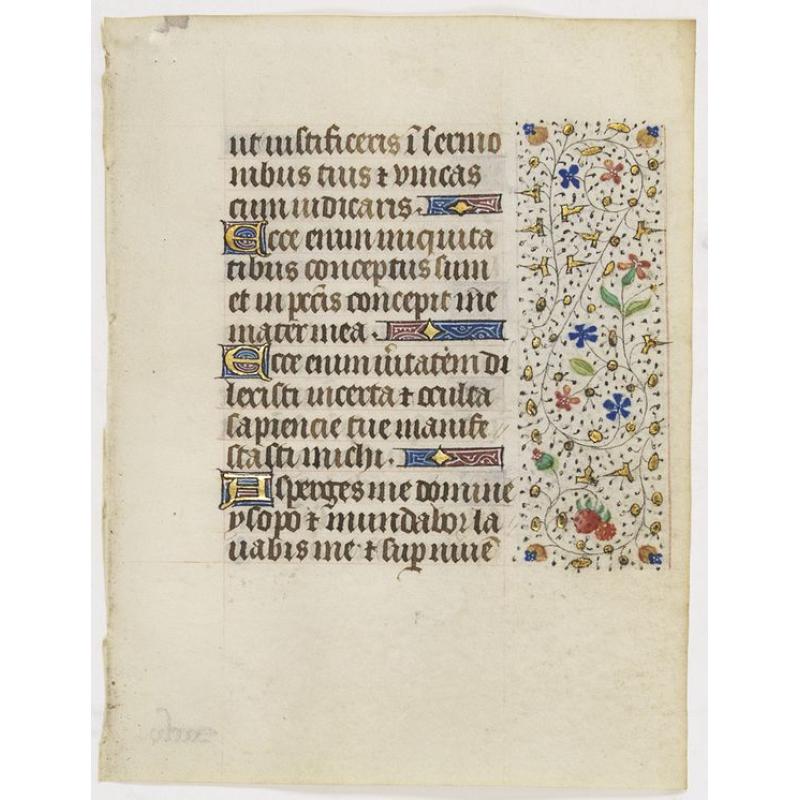 ut iustificeris ī sermo
nibus tuis ⁊ vincas
cum iudicaris.
Ecce enim iniquita
tibus conceptus sum
et in pctīs concepit me
mater mea.
Ecce enim uītatem di
lexisti incerta ⁊ occulta
sapiencie tue manife
stasti michi.
Asperges me domine
ysopo ⁊ mundabor la
uabis me ⁊ sup niuē